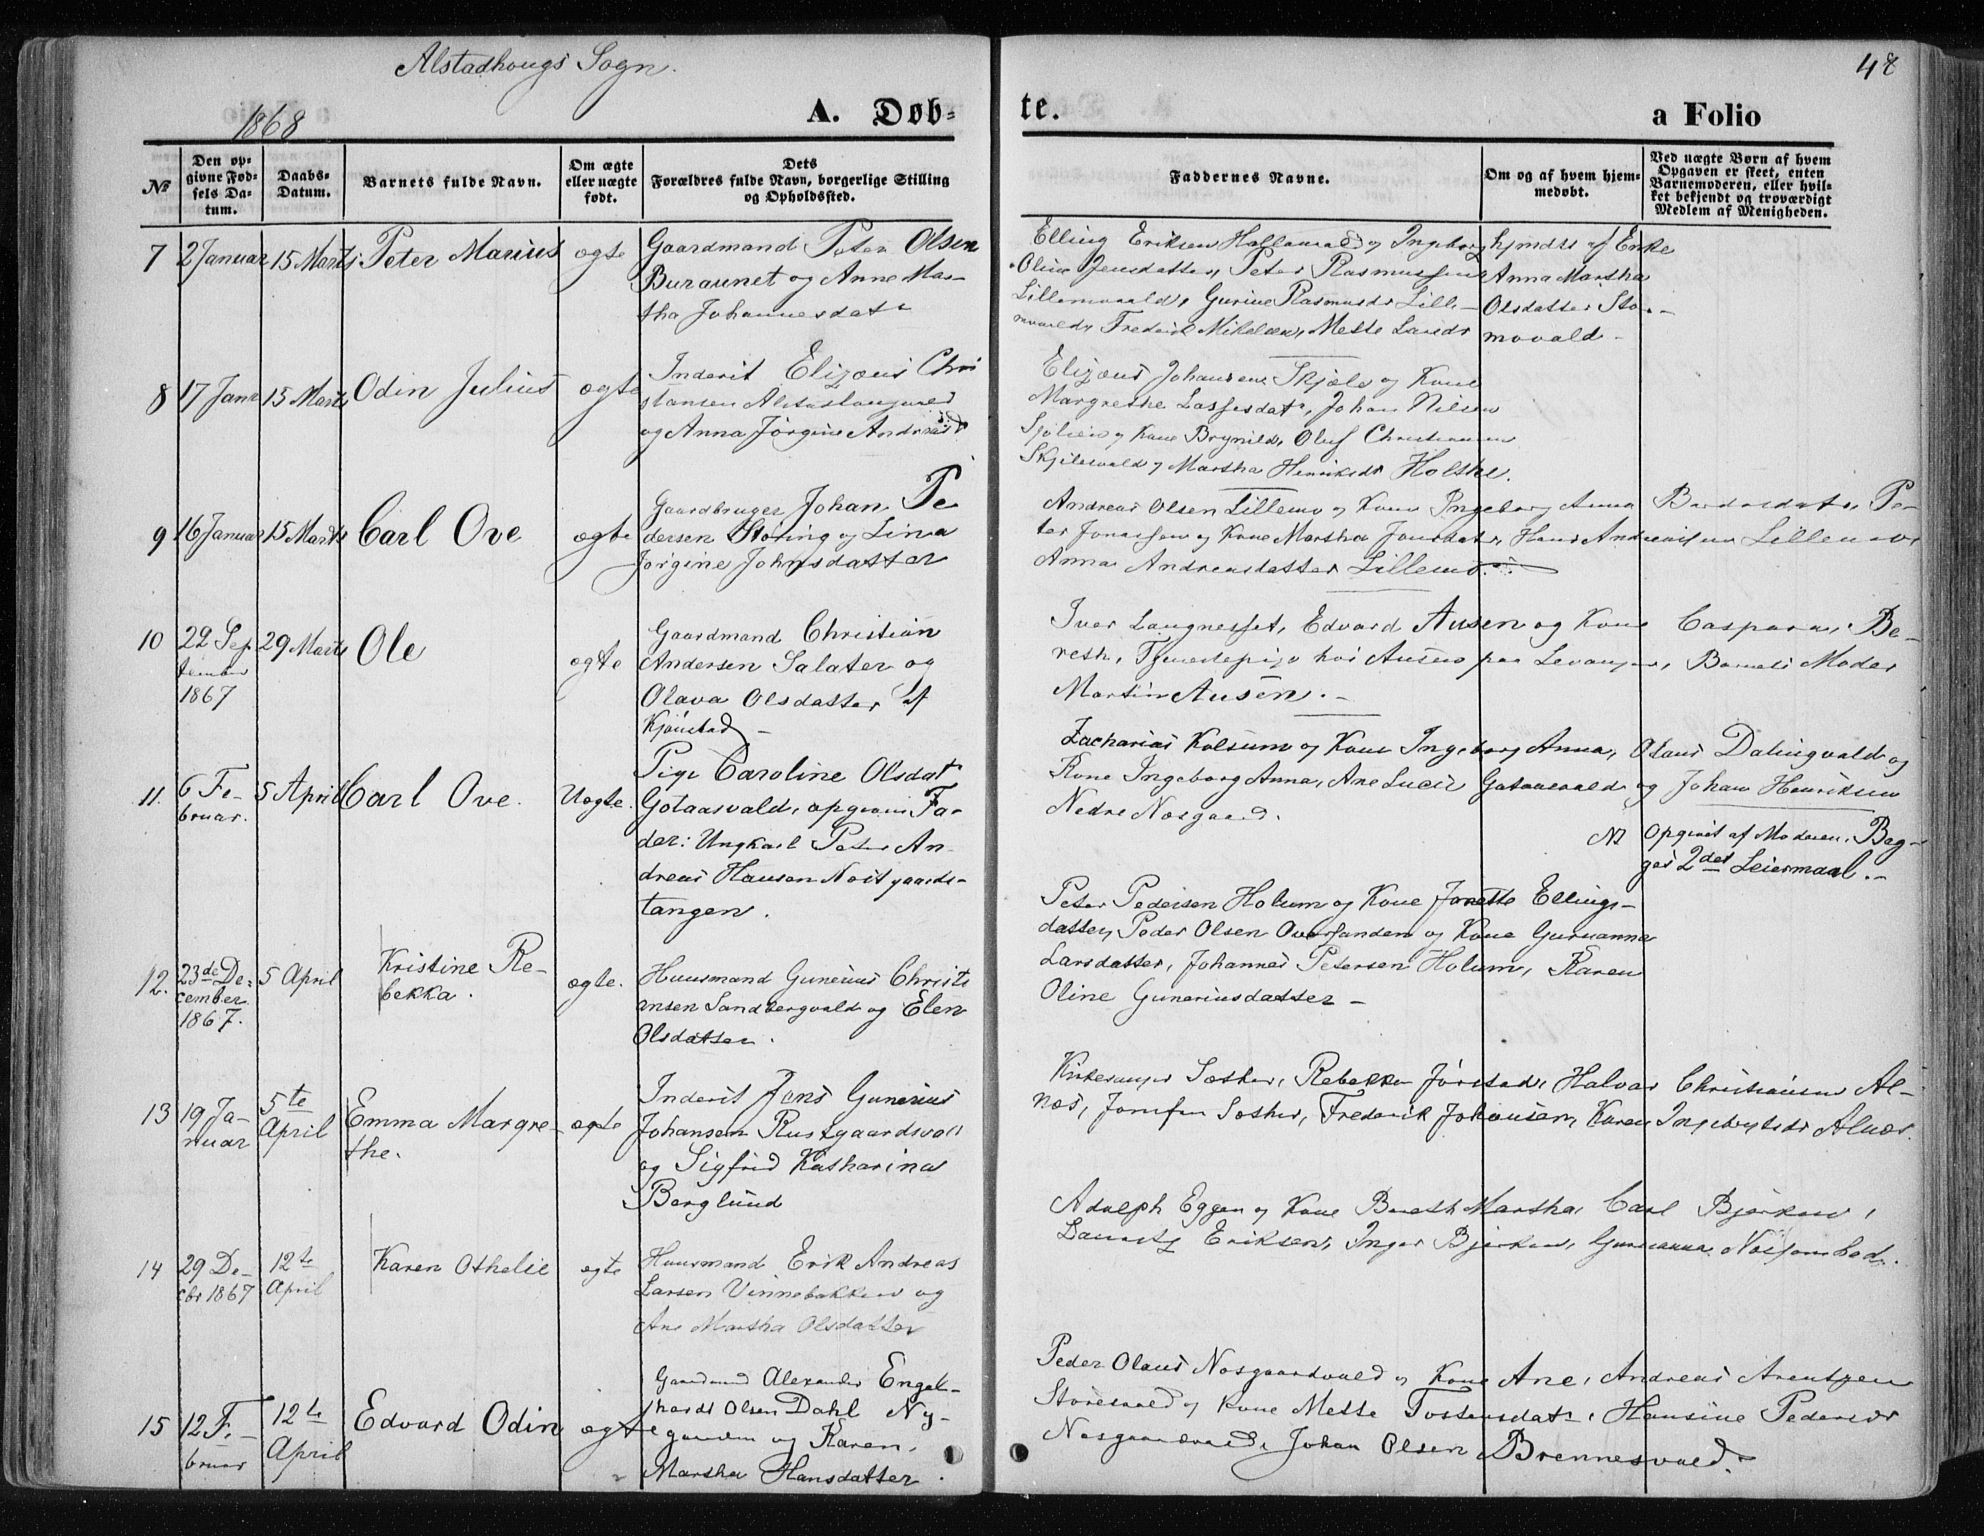 Alstadhougs Sogn.
48
1868
A. Døb-
te.
a Folio
№
Den op-
givne Fød-
sels Da-
tum.
Daabs-
Datum.
Barnets fulde Navn.
Om ægte
eller uægte
født.
Dets
Forældres fulde Navn, borgerlige Stilling
og Opholdssted.
Faddernes Navne.
Om og af hvem hjem-
medøbt.
Ved uægte Børn af hvem
Opgaven er skeet, enten
Barnemoderen, eller hvil-
ket bekjendt og troværdigt
Medlem af Menigheden.
7 2 Januar 15 Marts Peter Marius ægte
Gaardmand Peter Olsen
Buraunet og Anne Mar-
tha Johannesdatr
Elling Eriksen og Ingeborg
Oline Jensdatter, Peter Rasmussen
Gurine Rasmusdr Lille-
Fredrik Mikelsen, Mette
hjmdt af Enke
Anna Martha
Olsdatter Sto-
movald
8 17 Janr 15 Marts Odin Julius ægte
Inderst Elizæus Chri
stansen
og Anna Jørgine
Elizæus Johansen Skjæle og Kone
Margrethe Lassesdatr, Johan Nilsen
og Kone Brynild, Oluf Christiansen
og Martha Henriksdr Holthe.
9 16 Januar 15 Marts Carl Ove ægte
Gaardbruger Johan Pe
dersen Støring og Lina
Jørgine Johnsdatter
Andreas Olsen Lillemo og Kone Ingeborg Anna Bardosdatr, Pe-
ter Jonassen og Kone Martha Lillemo,
Anna Andreasdatter Lillemo.
10 22 Sep
tember
1867
29 Marts Ole ægte
Gaardmand Christian
Andersen Salater og
Olava Olsdatter af
Kjønstad
Iver Langnesset, Edvard Ausen og Kone Caspara, Be-
reth, Tjenestepige hos Ausen paa Levanger, Barnets Moder
Ausen.
11. 6 Fe-
bruar.
5 April Carl Ove. Uægte.
Pige Caroline Olsdatr
Gotaasvald, opgiven Fa-
der: Ungkarl Peter An-
dreas Hansen
tangen.
Zacharias Kolsum og Kone Ingeborg Anna, Olaus Dalingvald og
Kone Ingeborg Anna, Ane Lucie Gotaasvald og Johan Henriksen
Nedre Nosgaard.
Opgivet af Moderen. Beg-
ges 2det Leiermaal.
12. 23de De-
cember
1867.
5 April
Kristine Re-
bekka.
ægte.
Huusmand Gunerius Christi
ansen Sandbergvald og Elen
Olsdatter.
Peter Pedersen Holum og Kone Jonette Ellings-
datter, Peder Olsen Oversanden og Kone Guruanna
Larsdatter, Johannes Petersen Holum, Karen
Oline Guneriusdatter
13 19 Ja-
nuar
5te
April
Emma Margre-
the.
ægte
Inderst Jens Gunerius
Johansen
og Sigfrid Katharina
Berglund
Kirkesanger Sæther, Rebekka Jørstad, Halvar Christiansen Al-
nes, Sæther, Fredrik Johansen, Karen Ingebrigtsdr Alnæs.
14 29 De-
cbr 1867
12te
April
Karen Othelie ægte
Huusmand Erik Andreas
Larsen Vinnebakken og
Ane Martha Olsdatter
Adolph Eggen og Kone Bereth Martha, Carl Bjerken,
Lauritz Eriksen, Inger Bjerken, Guruanna
15 12 Fe-
bruar
12te
April
Edvard Odin ægte
Gaardmand Alexander Engel-
hardt Olsen Dahl Ny-
gaarden og Karen
Martha Hansdatter.
Peder Olaus Nosgaardvald og Kone Ane, Andreas Arentsen
Storesvald og Kone Mette Tostensdatr, Hansine Pedersdr
Johan Olsen Brennesvald.